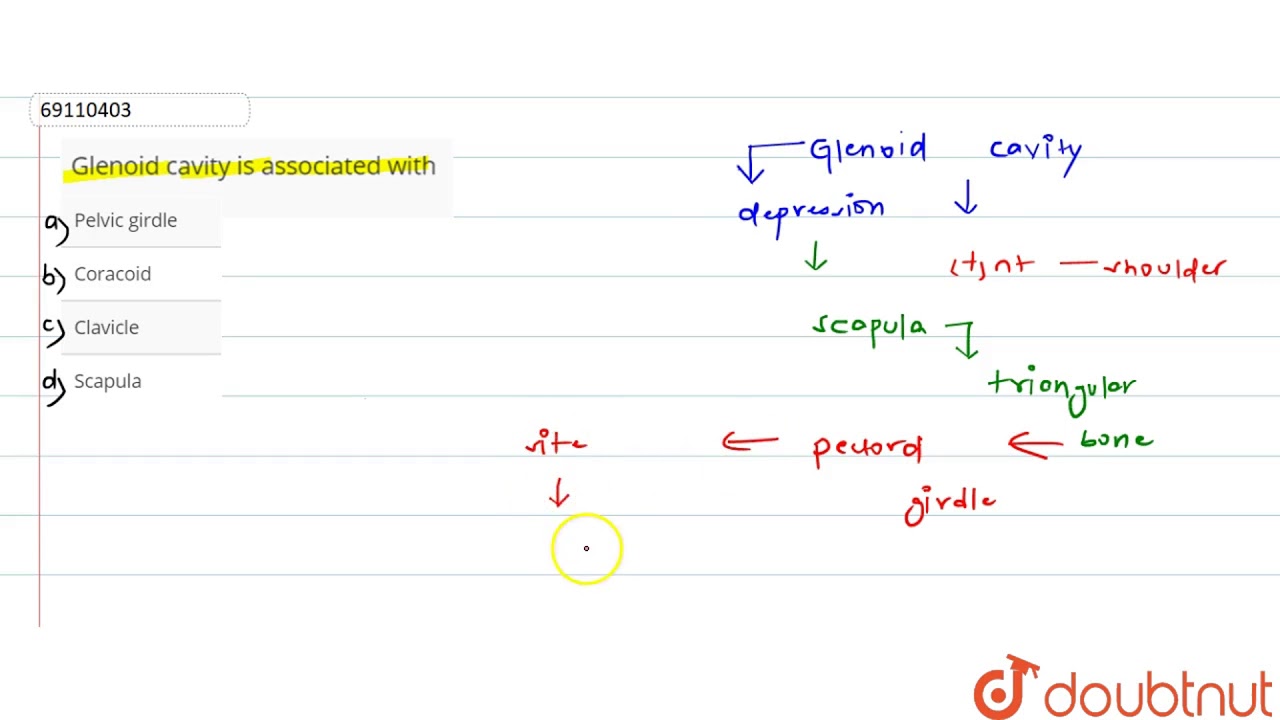 69110403
Glenoid cavity is associated with
a) Pelvic girdle
b) Coracoid
c) Clavicle
d) Scapula
Glenoid cavity
depression
shoulder
scapula
triangular
bone
pectoral
girdle
site
doubtnut